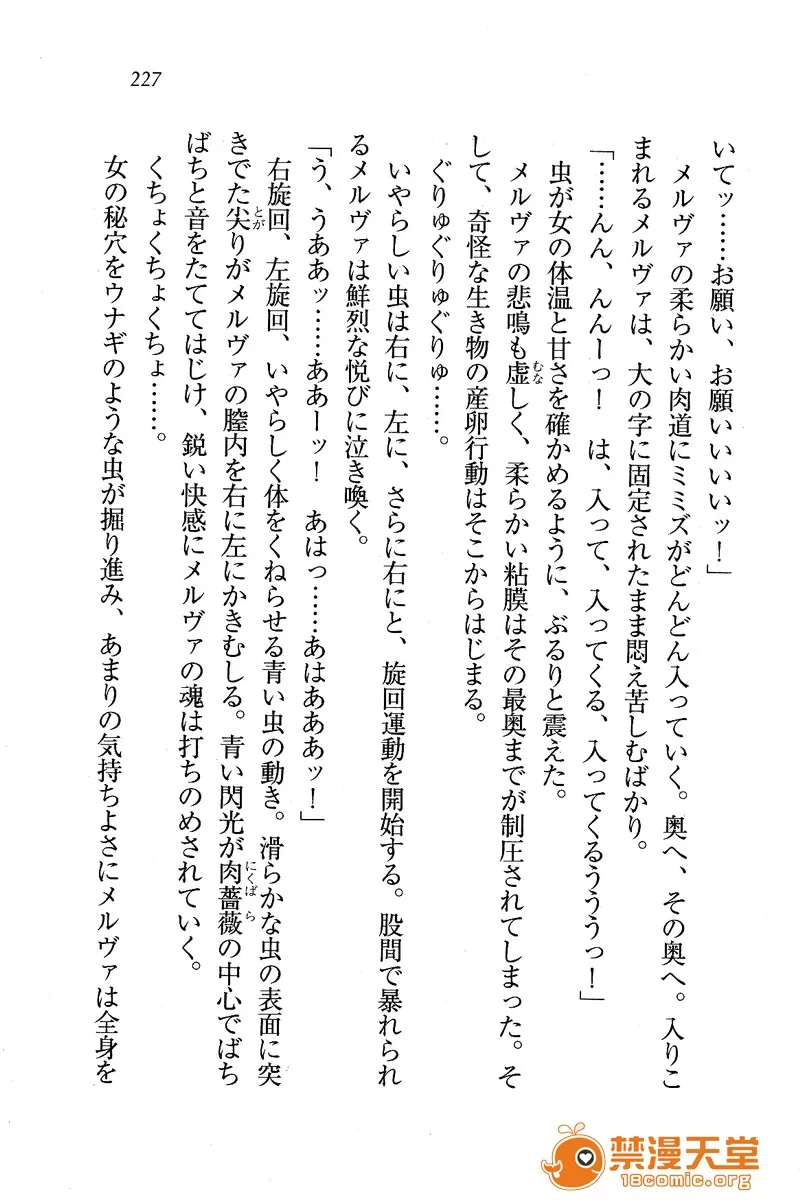 227
いてッ……お願い、お願いいいいッ！」
メルヴァの柔らかい肉道にミミズがどんどん入っていく。奥へ、その奥へ。入りこ
まれるメルヴァは、大の字に固定されたまま悶え苦しむばかり。
「……んん、んんーっ！　は、入って、入ってくる、入ってくるうううっ！」
虫が女の体温と甘さを確かめるように、ぶるりと震えた。
メルヴァの悲鳴も虚しく、柔らかい粘膜はその最奥までが制圧されてしまった。そ
して、奇怪な生き物の産卵行動はそこからはじまる。
ぐりゅぐりゅぐりゅ……。
いやらしい虫は右に、左に、さらに右にと、旋回運動を開始する。股間で暴れられ
るメルヴァは鮮烈な悦びに泣き喚く。
「う、うああッ……ああーッ！　あはっ……あはあああッ！」
右旋回、左旋回、いやらしく体をくねらせる青い虫の動き。滑らかな虫の表面に突
きでた尖りがメルヴァの膣内を右に左にかきむしる。青い閃光が肉薔薇の中心でばち
ばちと音をたててはじけ、鋭い快感にメルヴァの魂は打ちのめされていく。
くちょくちょくちょ……。
女の秘穴をウナギのような虫が掘り進み、あまりの気持ちよさにメルヴァは全身を
禁漫天堂
18comic.org